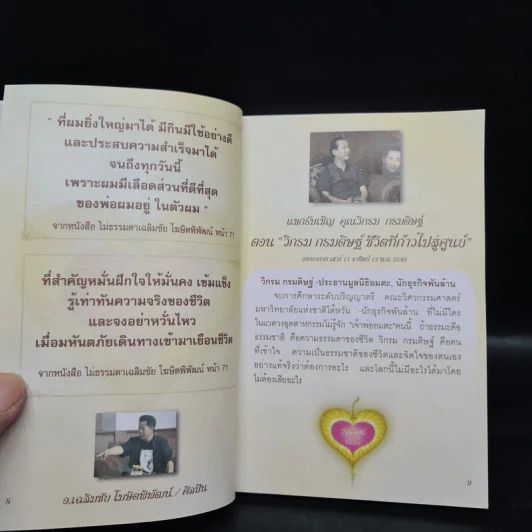 " ที่ผมยิ่งใหญ่มาได้ มีกินมีใช้อย่างดี
และประสบความสำเร็จมาได้
จนถึงทุกวันนี้
เพราะผมมีเลือดส่วนที่ดีที่สุด
ของพ่อผมอยู่ ในตัวผม "
จากหนังสือ ไม่ธรรมดาเฉลิมชัย โฆษิตพิพัฒน์ หน้า 71
ที่สำคัญหมั่นฝึกใจให้มั่นคง เข้มแข็ง
รู้เท่าทันความจริงของชีวิต
และจงอย่าหวั่นไหว
เมื่อมหันตภัยเดินทางเข้ามาเยือนชีวิต
จากหนังสือ ไม่ธรรมดาเฉลิมชัย โฆษิตพิพัฒน์ หน้า 71
อ.เฉลิมชัย โฆษิตพิพัฒน์ / ศิลปิน
8
แขกรับเชิญ คุณวิกรม กรมดิษฐ์
ตอน "วิกรม กรมดิษฐ์ ชีวิตที่ก้าวไปสู่ศูนย์"
วิกรม กรมดิษฐ์ -ประธานมูลนิธิอมตะ, นักธุรกิจพันล้าน
จบการศึกษาระดับปริญญาตรี คณะวิศวกรรมศาสตร์
มหาวิทยาลัยแห่งชาติไต้หวัน -นักธุรกิจพันล้าน ที่ไม่มีใคร
ในแวดวงอุตสาหกรรมไม่รู้จัก "เจ้าพ่ออมตะ"คนนี้ ถ้าธรรมะคือ
ธรรมชาติ คือความธรรมดาของชีวิต วิกรม กรมดิษฐ์ คือคน
ที่เข้าใจ ความเป็นธรรมชาติของชีวิตและจิตใจของตนเอง
อย่างแท้จริงว่าต้องการอะไร และโลกนี้ไม่มีอะไรได้มาโดย
ไม่ต้องเสียอะไร
9